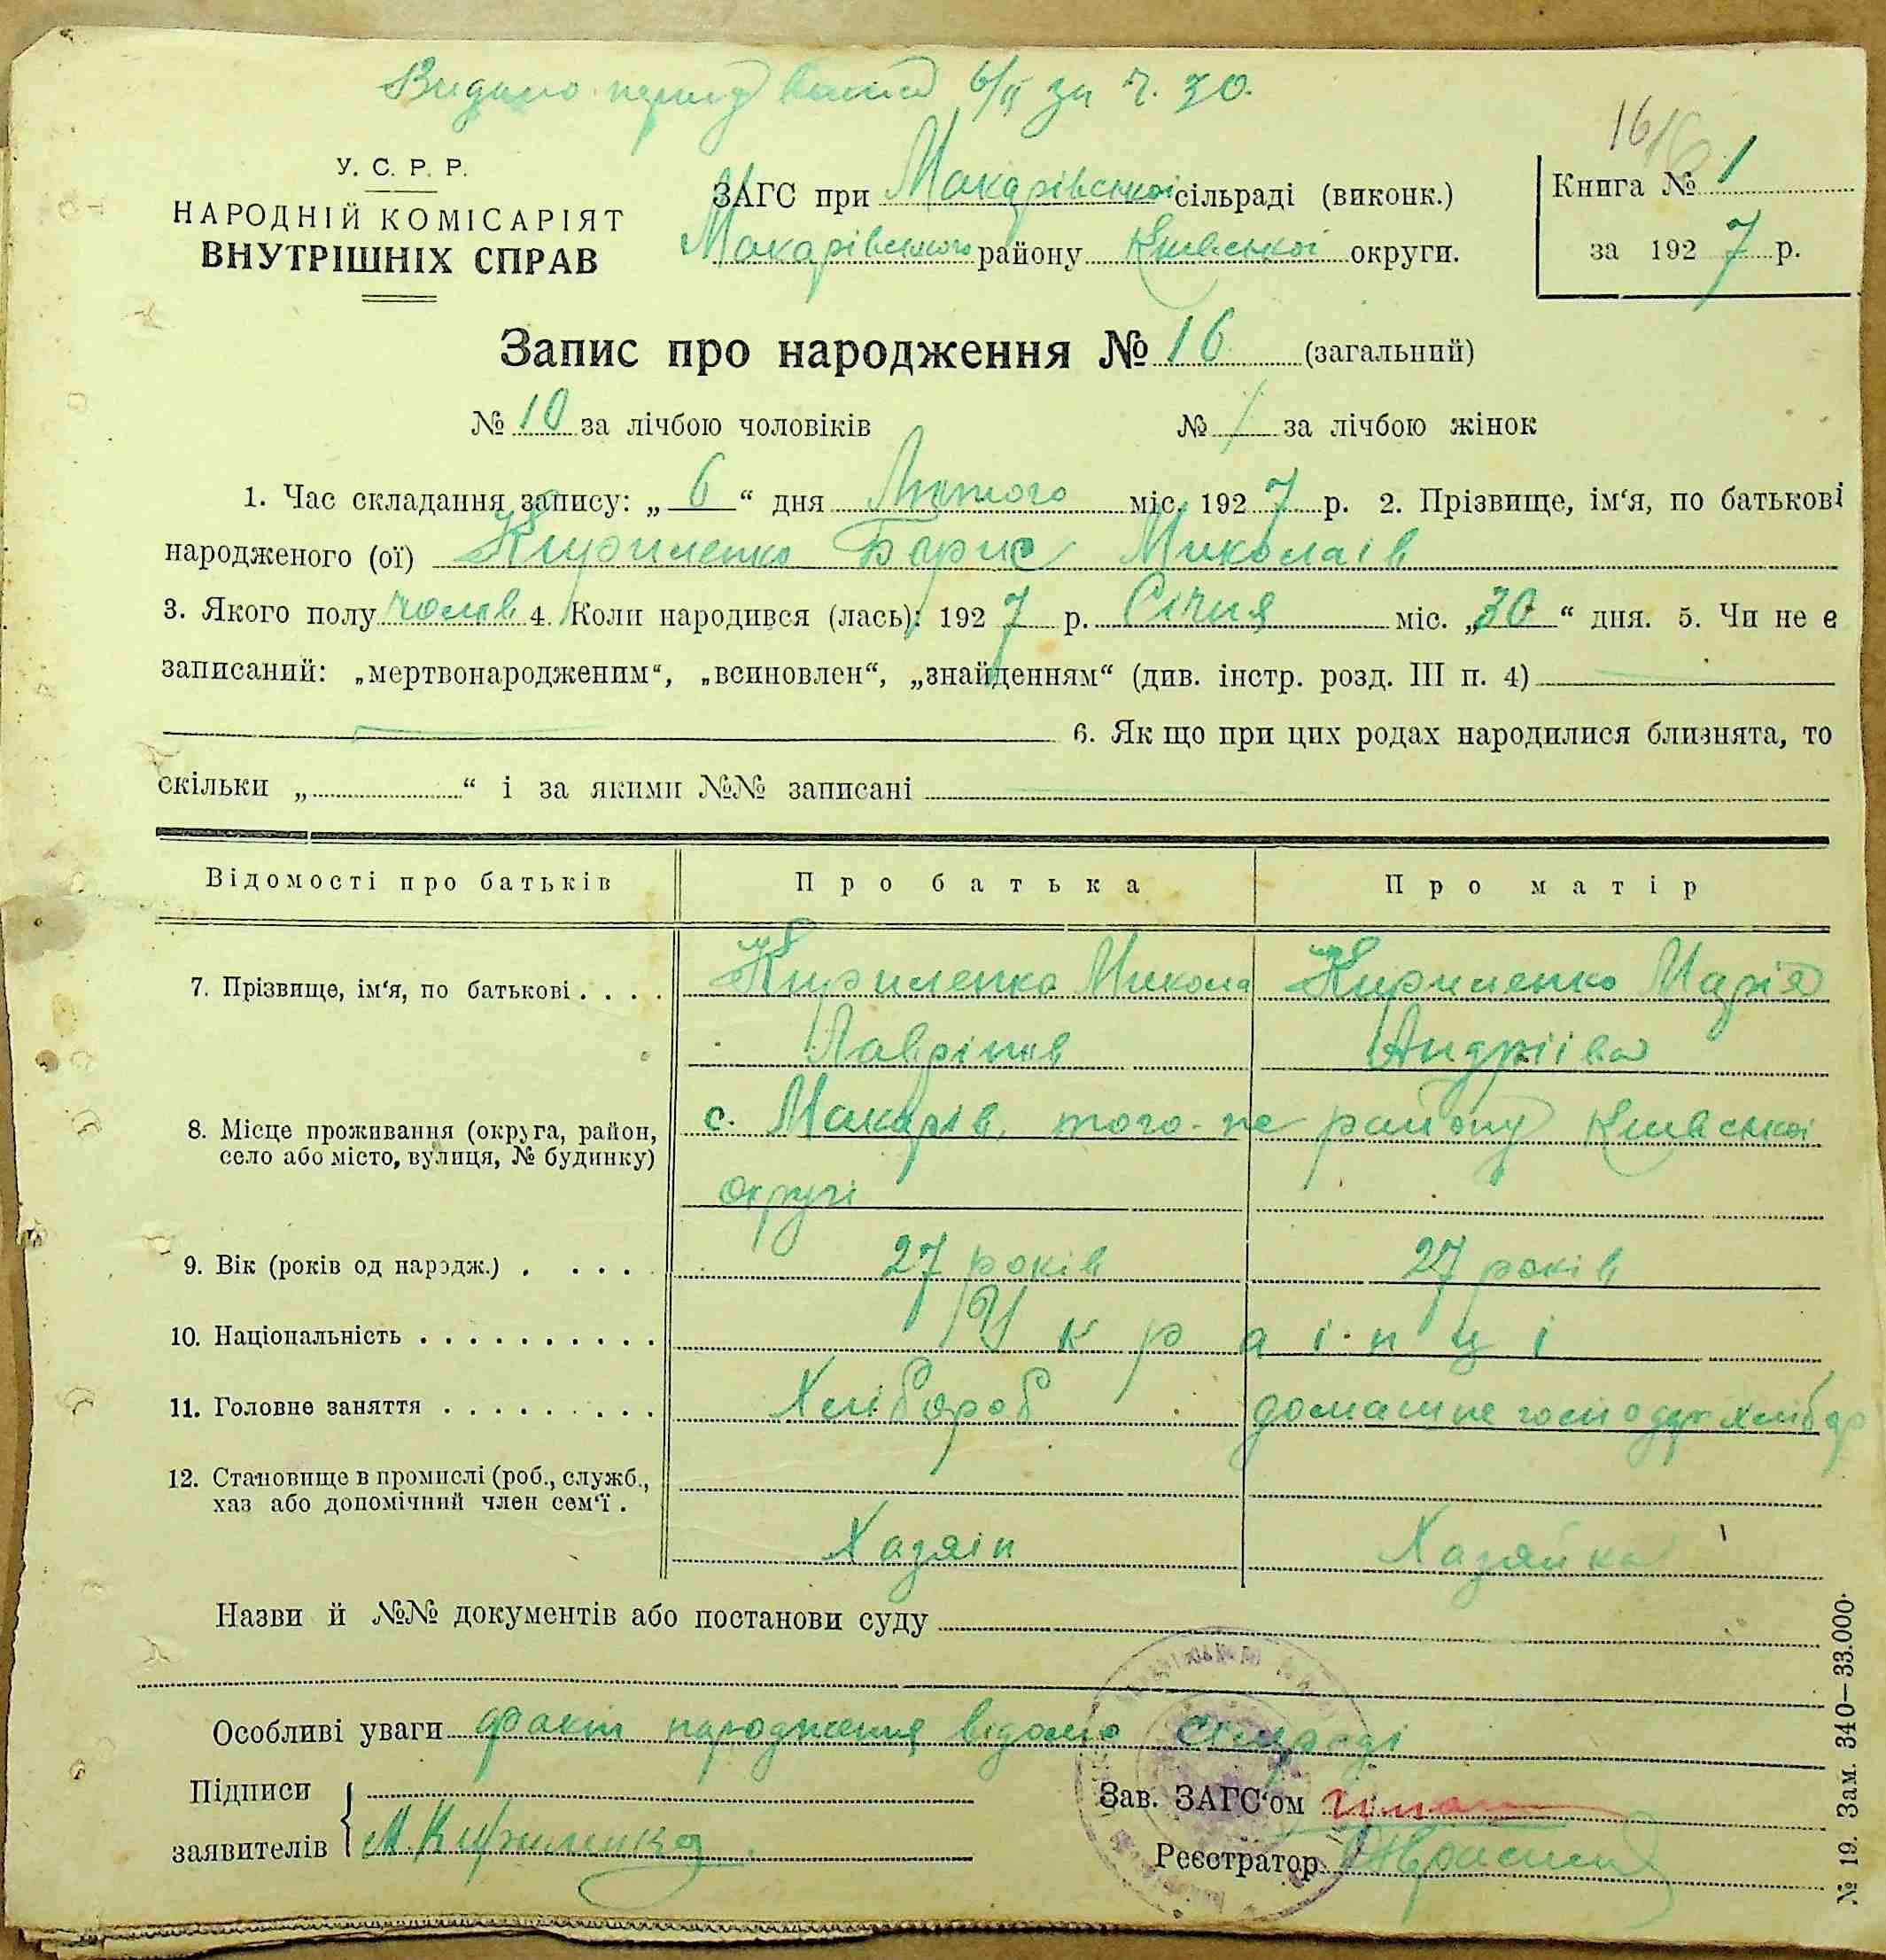 Видано 6/ІІ за ч. 30.
16/6
У. С. Р. Р.
НАРОДНІЙ КОМІСАРІЯТ
ВНУТРІШНІХ СПРАВ
ЗАГС при Макарівської сільраді (виконк.)
Макарівського району Київської округи.
Книга № 1
за 1927 р.
Запис про народження № 16 (загальний)
№ 10 за лічбою чоловіків № / за лічбою жінок
1. Час складання запису: „ 6 “ дня Лютого міс. 1927 р. 2. Прізвище, ім‘я, по батькові
народженого (ої) Кириленко Борис Миколаїв
3. Якого полу чолов 4. Коли народився (лась): 1927 р. Січня міс. „30“ дня. 5. Чи не є
записаний: „мертвонародженим“, „всиновлен“, „знайденням“ (див. інстр. розд. III п. 4)
6. Як що при цих родах народилися близнята, то
скільки „ “ і за якими №№ записані
Відомості про батьків Про батька Про матір
7. Прізвище, ім‘я, по батькові . . . . Кириленко Микола Кириленко Марія
Лаврінів Андріїва
8. Місце проживання (округа, район,
село або місто, вулиця, № будинку)
с. Макарів, того-же району Київської
округі
9. Вік (років од народж.) . . . . . 27 років 27 років
10. Національність . . . . . . . . . . Українці
11. Головне заняття . . . . . . . . . Хлібороб домашне господар хлібор
12. Становище в промислі (роб., служб.,
хаз або допомічний член сем‘ї .
Хазяін Хазяйка
Назви й №№ документів або постанови суду
Особливі уваги факт народження відомо сільраді
Підписи
заявителів М Кириленко
Зав. ЗАГС‘ом
Реєстратор
№ 19. Зам. 340—33.000.